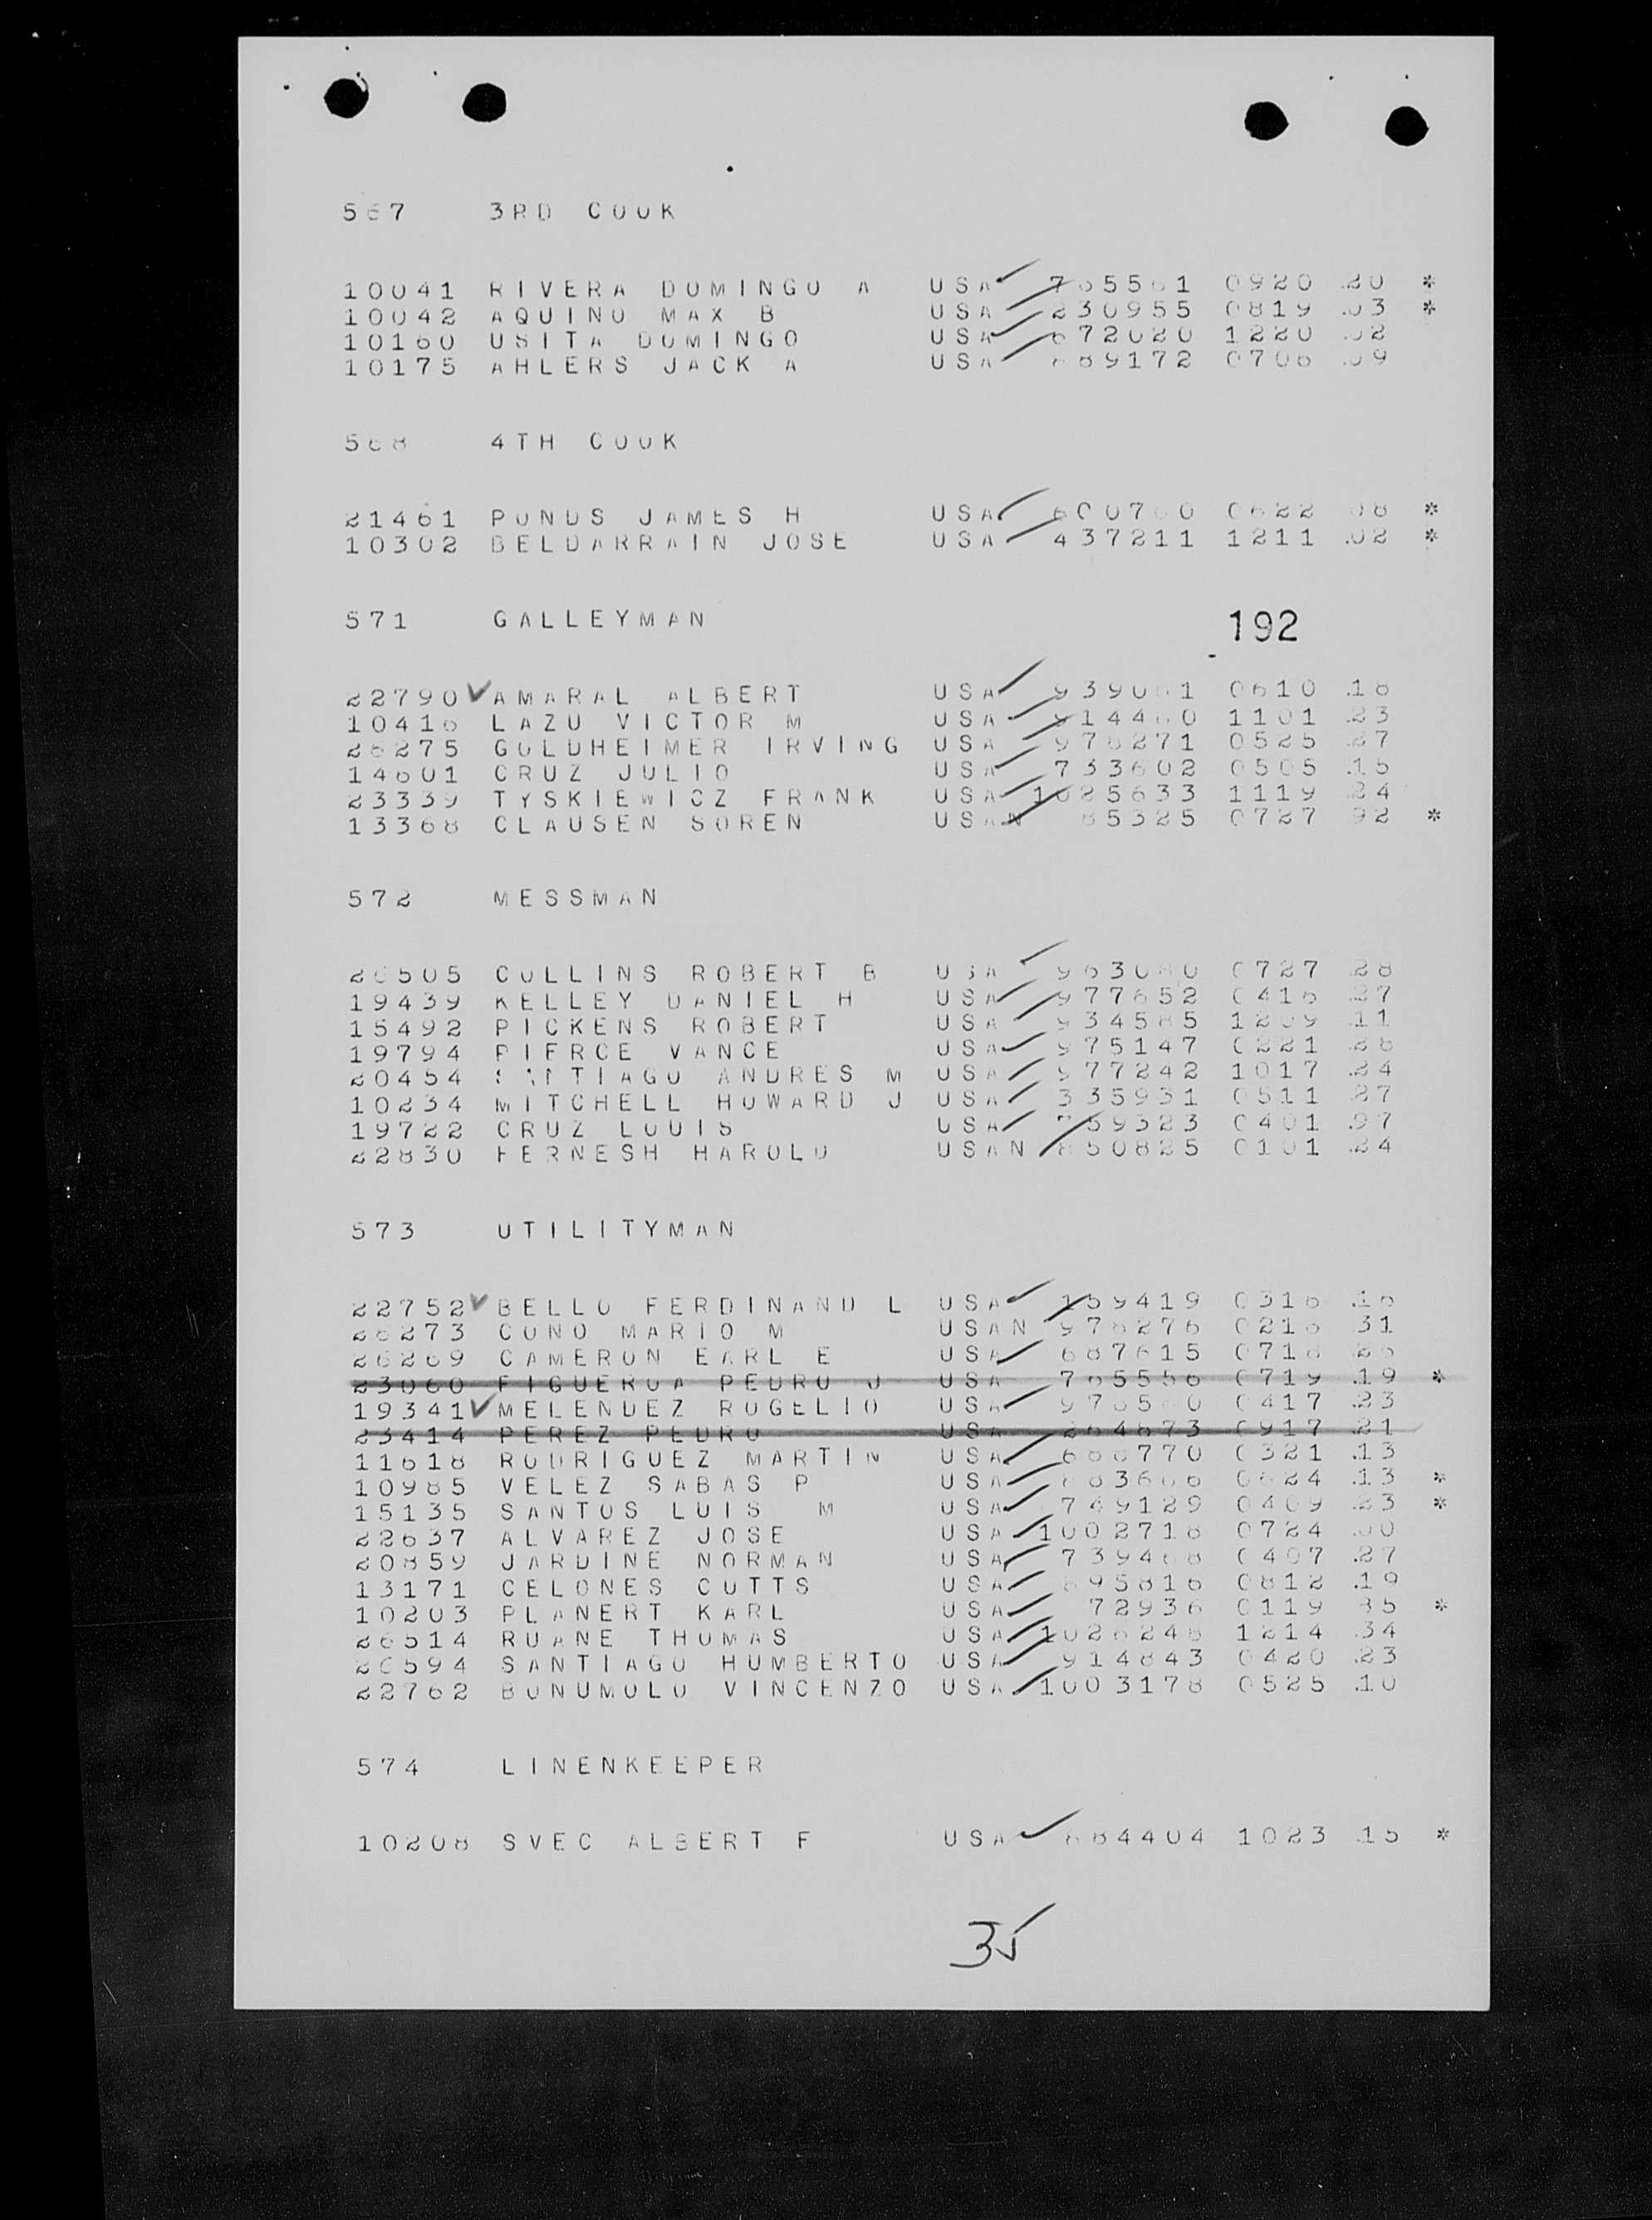 567 3RD COOK
10041 RIVERA DOMINGO A USA 765561 0920 .20 *
10042 AQUINO MAX B USA 230955 0819 .03 *
10160 USITA DOMINGO USA 672020 1220 .02
10175 AHLERS JACK A USA 889172 0706 .09
568 4TH COOK
21461 PONDS JAMES H USA 600760 0622 08 *
10302 BELDARRAIN JOSE USA 437211 1211 .02 *
571 GALLEYMAN
192
22790 AMARAL ALBERT USA 0610 .18
10416 LAZU VICTOR M USA 914460 1101 .23
26275 GOLDHEIMER IRVING USA 976271 0525 .27
14601 CRUZ JULIO USA 733602 0505 .15
23339 TYSKIEWICZ FRANK USA 1025633 1119 24
13368 CLAUSEN SOREN USAN 85325 0727 92 *
572 MESSMAN
20505 COLLINS ROBERT B USA 0727 28
19439 KELLEY DANIEL H USA 977652 0416 .27
15492 PICKENS ROBERT USA 934585 1209 .11
19794 PIERCE VANCE USA 975147 0221 .28
20454 SANTIAGO ANDRES M USA 977242 1017 .24
10234 MITCHELL HOWARD J USA 335931 0511 .27
19722 CRUZ LOUIS USA 759323 0401 .97
22830 FERNESH HAROLD USAN 850825 0101 .24
573 UTILITYMAN
22752 BELLO FERDINAND L USA 159419 0316 .16
26273 CONO MARIO M USAN 976276 0216 31
26269 CAMERON EARL E USA 687615 0718 .26
23060 FIGUEROA PEDRO J USA 765556 0719 .19 *
19341 MELENDEZ ROGELIO USA 0417 .23
23414 PEREZ PEDRO USA 264873 0917 .21
11618 RODRIGUEZ MARTIN USA 688770 0321 .13
10985 VELEZ SABAS P USA 883606 0624 .13 *
15135 SANTOS LUIS M USA 749129 0409 .23 *
22637 ALVAREZ JOSE USA 1002718 0724 .00
20859 JARDINE NORMAN USA 739468 0407 .27
13171 CELONES CUTTS USA 895816 0812 .19
10203 PLANERT KARL USA 72936 0119 85 *
26514 RUANE THOMAS USA 1026248 1214 .34
20594 SANTIAGO HUMBERTO USA 914843 0420 .23
22762 BONUMOLO VINCENZO USA 1003178 0525 .10
574 LINENKEEPER
10208 SVEC ALBERT F USA 884404 1023 .15 *
35